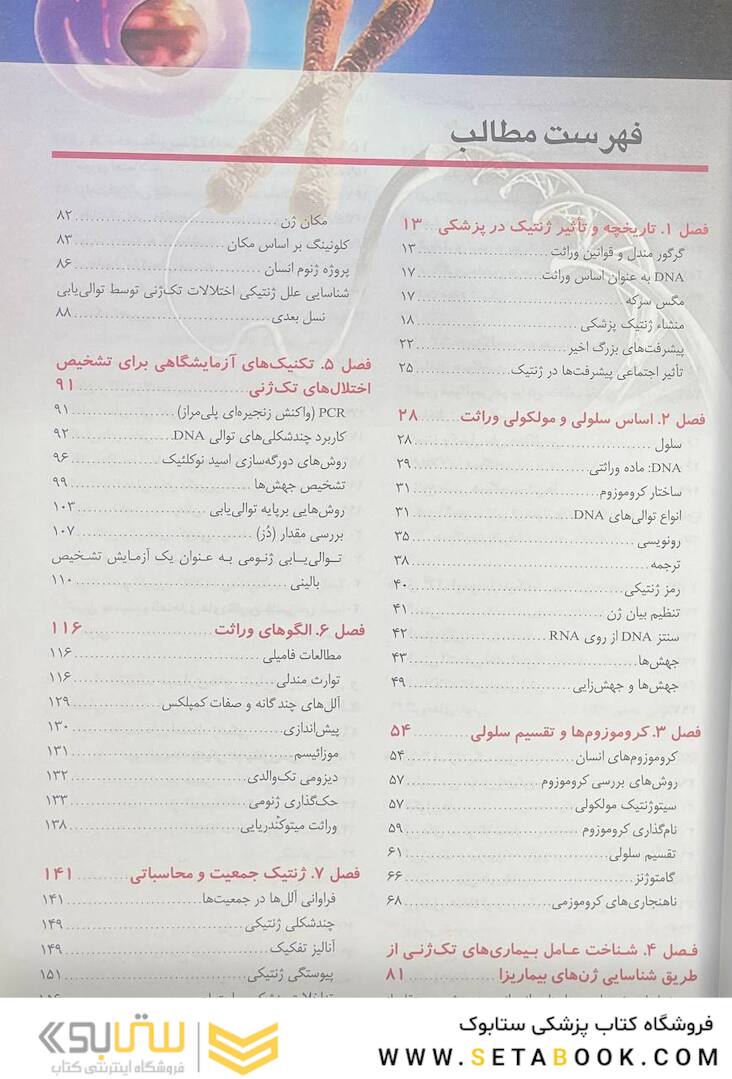 فهرست مطالب
فصل ۱. تاریخچه و تأثیر ژنتیک در پزشکی ۱۳
گرگور مندل و قوانین وراثت ۱۳
DNA به عنوان اساس وراثت ۱۷
مگس سرکه ۱۷
منشاء ژنتیک پزشکی ۱۸
پیشرفت‌های بزرگ اخیر ۲۲
تأثیر اجتماعی پیشرفت‌ها در ژنتیک ۲۵
فصل ۲. اساس سلولی و مولکولی وراثت ۲۸
سلول ۲۸
DNA: ماده وراثتی ۲۹
ساختار کروموزوم ۳۱
انواع توالی‌های DNA ۳۱
رونویسی ۳۵
ترجمه ۳۸
رمز ژنتیکی ۴۰
تنظیم بیان ژن ۴۱
سنتز DNA از روی RNA ۴۲
جهش‌ها ۴۳
جهش‌ها و جهش‌زایی ۴۹
فصل ۳. کروموزوم‌ها و تقسیم سلولی ۵۴
کروموزوم‌های انسان ۵۴
روش‌های بررسی کروموزوم ۵۷
سیتوژنتیک مولکولی ۵۷
نام‌گذاری کروموزوم ۵۹
تقسیم سلولی ۶۱
گامتوژنز ۶۶
ناهنجاری‌های کروموزومی ۶۸
فصل ۴. شناخت عامل بیماری‌های تک‌ژنی از
طریق شناسایی ژن‌های بیماریزا ۸۱
مکان ژن ۸۲
کلونینگ بر اساس مکان ۸۳
پروژه ژنوم انسان ۸۶
شناسایی علل ژنتیکی اختلالات تک‌ژنی توسط توالی‌یابی
نسل بعدی ۸۸
فصل ۵. تکنیک‌های آزمایشگاهی برای تشخیص
اختلال‌های تک‌ژنی ۹۱
PCR (واکنش زنجیره‌ای پلی‌مراز) ۹۱
کاربرد چندشکلی‌های توالی DNA ۹۲
روش‌های دورگه‌سازی اسید نوکلئیک ۹۶
تشخیص جهش‌ها ۹۹
روش‌هایی برپایه توالی‌یابی ۱۰۳
بررسی مقدار (دُز) ۱۰۷
توالی‌یابی ژنومی به عنوان یک آزمایش تشخیص
بالینی ۱۱۰
فصل ۶. الگوهای وراثت ۱۱۶
مطالعات فامیلی ۱۱۶
توارث مندلی ۱۱۶
آلل‌های چند گانه و صفات کمپلکس ۱۲۹
پیش‌اندازی ۱۳۰
موزائیسم ۱۳۱
دیزومی تک‌والدی ۱۳۲
حک‌گذاری ژنومی ۱۳۳
وراثت میتوکندریایی ۱۳۸
فصل ۷. ژنتیک جمعیت و محاسباتی ۱۴۱
فراوانی آلل‌ها در جمعیت‌ها ۱۴۱
چندشکلی ژنتیکی ۱۴۹
آنالیز تفکیک ۱۴۹
پیوستگی ژنتیکی ۱۵۱
فروشگاه کتاب پزشکی ستابوک
WWW.SETABOOK.COM
ستابوک
فروشگاه اینترنتی کتاب